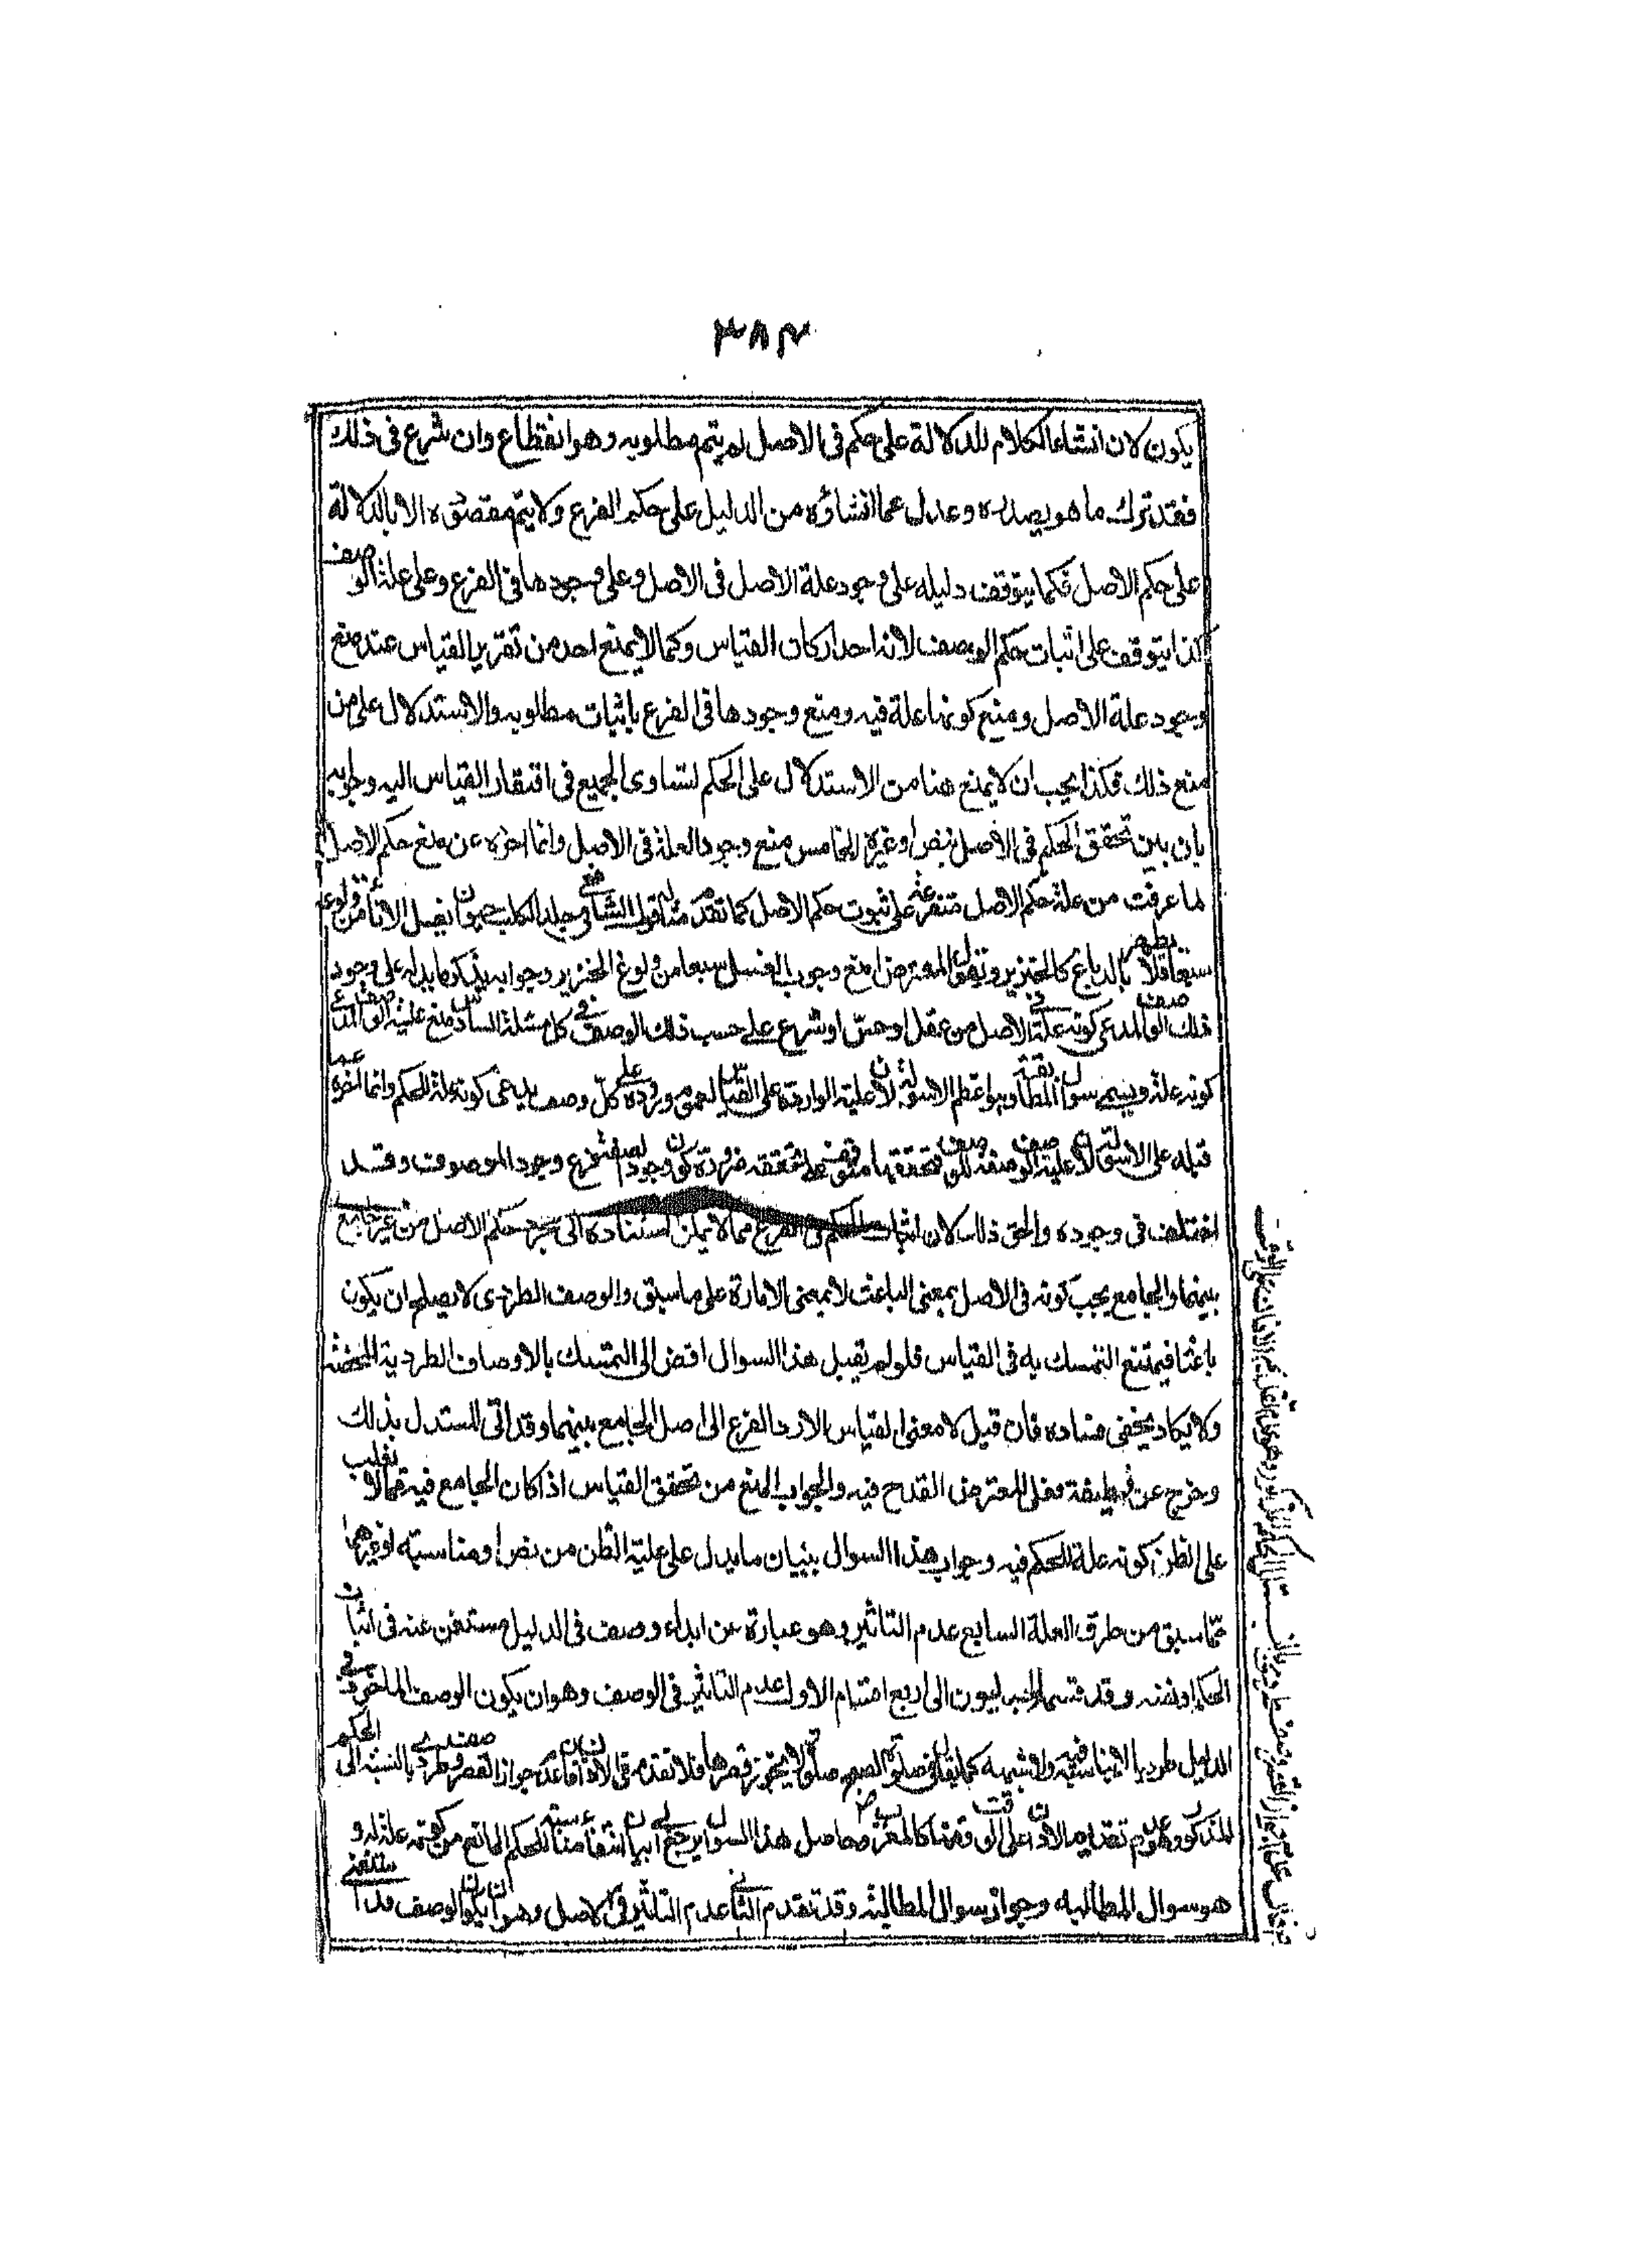 ٣٨٣
يكون لان انشاء الكلام للدلالة على حكم فى الاصل لم يتم مطلوبه وهو انقطاع وان شرع فى ذلك
فقد ترك ما هو بصدده وعدل عما انشاؤه من الدليل على حكم الفرع ولا يتم مقصوده الا بالدلالة
على حكم الاصل فكما يتوقف دليله على وجود علة الاصل فى الاصل وعلى وجودها فى الفرع وعلى علية الوصف
كذا يتوقف على اثبات حكم الوصف لانه احد اركان القياس وكما لا يمنع احد من تقرير القياس عند منع
وجود علة الاصل ومنع كونها علة فيه ومنع وجودها فى الفرع باثبات مطلوبه والاستدلال على من
منع ذلك فكذا يجب ان لا يمنع هنا من الاستدلال على الحكم لتساوى الجميع فى افتقار القياس اليه وجوابه
بان يبين تحقق الحكم فى الاصل بنص او غيره الخامس منع وجود العلة فى الاصل وانما اخره عن منع حكم الاصل
لما عرفت من علة حكم الاصل متفرعة على ثبوت حكم الاصل كما تقدم مثاله قول الشافعى فى جلد الكلب حيوان يغسل الاناء من ولوغه
سبعا فلا يطهر بالدباغ كالخنزير وتقول المعترض امنع وجوب الغسل سبعا من ولوغ الخنزير وجوابه بذكر ما يدل على وجود
ذلك الوصف المدعى كونه علة فى الاصل من عقل او حس او شرع على حسب ذلك الوصف فى كل مسئلة السادس منع علية الوصف المدعى
كونه علة ويسمى سوال المطالبة وهو اعظم الاسولة لان علية الواردة على القياس لعمومه وروده على كل وصف يدعى كونه علة للحكم وانما اخره عما
قبله على الاسولة لان علية الوصف صفة للوصف فتحققها متوقف على تحققه ضرورة كون وجود الصفة فرع وجود الموصوف وقد
اختلف فى وجوده والحق ذلك لان اثبات الحكم فى الفرع مما لا يمكن استناده الى مجرد حكم الاصل من غير جامع
بينهما والجامع يجب كونه فى الاصل بمعنى الباعث لا بمعنى الامارة على ما سبق والوصف الطردى لا يصلح ان يكون
باعثا فيمتنع التمسك به فى القياس فلو لم يقبل هذا السوال افضى الى التمسك بالاوصاف الطردية المحضة
ولا يكاد يخفى فساده فان قيل لا معنى لقياس الا رد الفرع الى اصل الجامع بينهما وقد اتى المستدل بذلك
وخرج عن وظيفة فعلى المعترض القدح فيه والجواب المنع من تحقق القياس اذا كان الجامع فيه مما لا يغلب
على الظن كونه علة للحكم فيه وجواب هذا السوال ببيان ما يدل على علية الظن من نص او مناسبة او غيرهما
مما سبق من طرق العلة السابع عدم التاثير وهو عبارة عن ابداء وصف فى الدليل مستغن عنه فى اثبات
الحكم او نفيه وقد قسمه الجدليون الى اربع اقسام الاول عدم التاثير فى الوصف وهو ان يكون الوصف الماخوذ فى
الدليل طرديا لا مناسبة فيه ولا شبه كما يقال فى صلوة الصبح صلوة لا يجوز قصرها فلا تقدم على الاذان فان عدم جواز القصر وصف طردى بالنسبة الى الحكم
المذكور وهو عدم تقديم الاذان على الوقت كالمغرب وحاصل هذا السوال يرجع الى بيان انتفاء مناسبة للحكم المانع من كونه علة له و
هو سوال المطالبة وجوابه جواب سوال المطالبة وقد تقدم الثانى عدم التاثير فى الاصل وهو ان يكون الوصف قد استغنى